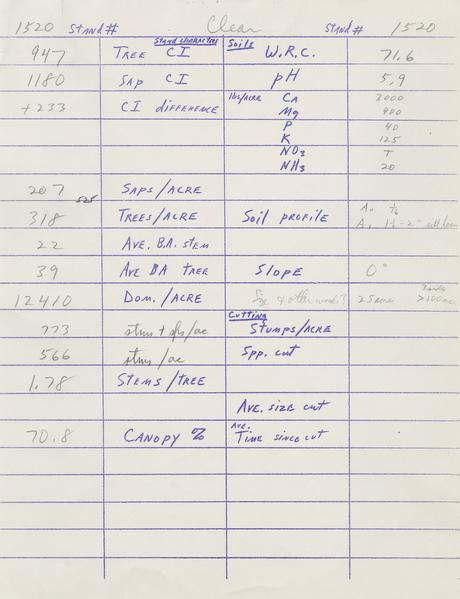 1520 STAND # Clear STAND # 1520
STAND CHARACTERS Soils
947 TREE CI W.R.C. 71.6
1180 SAP CI pH 5.9
+233 CI difference lbs/acre Ca 3000
Mg 900
P 40
K 125
NO3 T
NH3 20
207 SAPS/ACRE
525
318 TREES/ACRE Soil profile A₀
A₁ 1½-2"
22 AVE. B.A. STEM
39 AVE BA TREE SLOPE 0°
12410 DOM./ACRE Size & other 25 acres >100
Cutting
773 stms + sps/ac STUMPS/ACRE
566 stms/ac Spp. cut
1.78 STEMS/TREE
AVE. SIZE CUT
70.8 CANOPY % AVE. TIME SINCE CUT